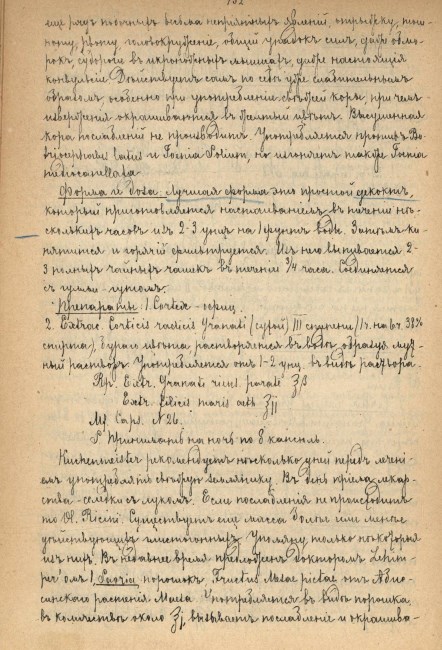 132
еще ряд побочныхъ весьма непріятныхъ явленій, отрыжку, тош-
ноту, рвоту, головокруженіе, общій упадокъ силъ, даже обмо-
рокъ, судороги въ икроножныхъ мышцахъ, даже настоящія
конвульсіи. Дѣйствуетъ самъ по себѣ уже слабительнымъ
образомъ, особенно при употребленіи свѣжей коры, при чемъ
изверженія окрашиваются въ желтый цвѣтъ. Высушенная
кора послабленій не производитъ. Употребляется противъ Bo-
triocephalus latus и Toenia Solium, но изгоняетъ также Toenia
mediocanellata.
Форма и доза: Лучшая форма это простой декоктъ,
который приготовляется настаиваніемъ въ теченіи нѣ-
сколькихъ часовъ изъ 2-3 унц. на 1 фунтъ воды. Затѣмъ ки-
пятится и горячій фильтруется. Изъ него выпивается 2-
3 полныхъ чайныхъ чашки въ теченіи 3/4 часа. Соединяется
съ гумми-гутомъ.
Препараты: 1. Cortex - офиц.
2. Extrac. Corticis radicis Granati (сухой) III ступени
спирта), бураго цвѣта, растворяется въ водѣ, образуя мут-
ный растворъ. Употребляется отъ 1-2 унц. въ видѣ раствора.
Rp. Extr. Granati rient parati ʒβ
Extr. Filicis maris aeth ʒII
Mf. Caps. N 26.
S. Принимать на ночь по 8 капсюль.
Kuchenmeister рекомендуетъ нѣсколько дней передъ лечені-
емъ употреблять свѣжую землянику. Въ день пріема лекар-
ства - селедки съ лукомъ. Если послабленія не происходитъ
то Ol. Ricini. Существуетъ еще масса болѣе или менѣе
дѣйствующихъ глистогонныхъ. Упомяну только нѣкоторыя
изъ нихъ. Въ недавнее время предложенъ докторомъ
омъ 1. Saoria порошокъ, Fructus Maesae pictae отъ Абис-
синскаго растенія Maesa. Употребляется въ видѣ порошка
въ количествѣ около ʒI, вызываетъ послабленіе и окрашива-